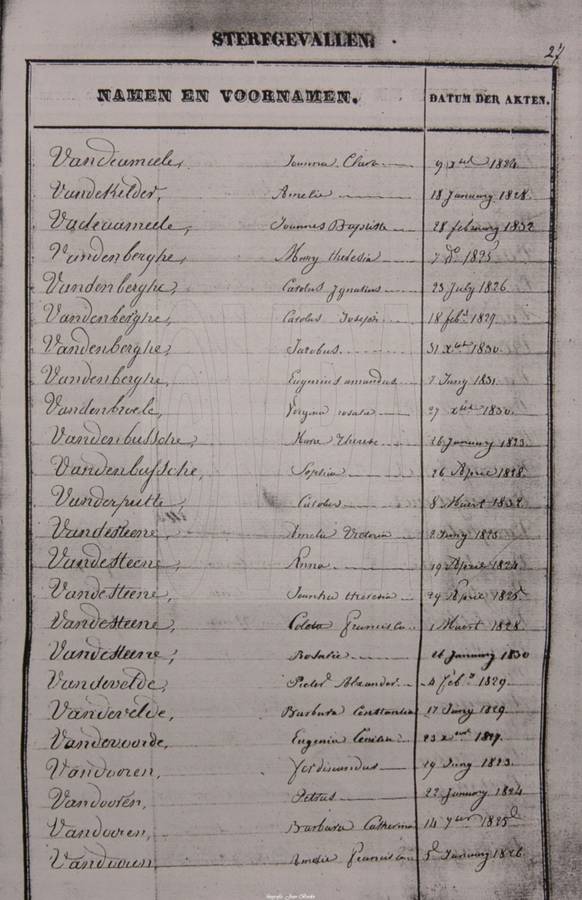 STERFGEVALLEN.
27
NAMEN EN VOORNAMEN. DATUM DER AKTEN.
Vandeameele, Joanna Clara 9 xber 1824.
Vandekelder, Amelie 18 January 1828.
Vadeaameele, Joannes Baptiste 28 february 1832
Vandenberghe, Mary theresia 7 do 1825
Vandenberghe, Carolus Ignatius 23 July 1826
Vandenberghe, Carolus Joseph 18 feb. 1829
Vandenberghe, Jacobus 31 xber 1830.
Vandenberghe, Eugenius amandus 7 Juny 1831.
Vandenbroele, rosalia 27 xber 1830.
Vandenbussche, Marie Therese 26 January 1823.
Vandenbussche, Sophia 26 April 1828.
Vanderputte, Carolus 8 Maart 1832
Vandesteene, Amelie Victoria 2 Juny 1823
Vandesteene, Anna 19 April 1824.
Vandesteene, theresia 29 April 1825.
Vandesteene, Coleta Francisca 1 Maart 1828
Vandesteene, Rosalie 26 January 1830
Vandevelde, Pieter Alexander 4 feb. 1829
Vandevelde, Barbara Constantia 17 Juny 1829
Vandevoorde, Eugenia Cecilia 23 xber 1827.
Vandooren, ferdinandus 29 Juny 1823.
Vandooren, Petrus 22 January 1824
Vandooren, Barbara Catherina 14 7ber 1825
Vandooren Amelie Francisca 5 January 1826